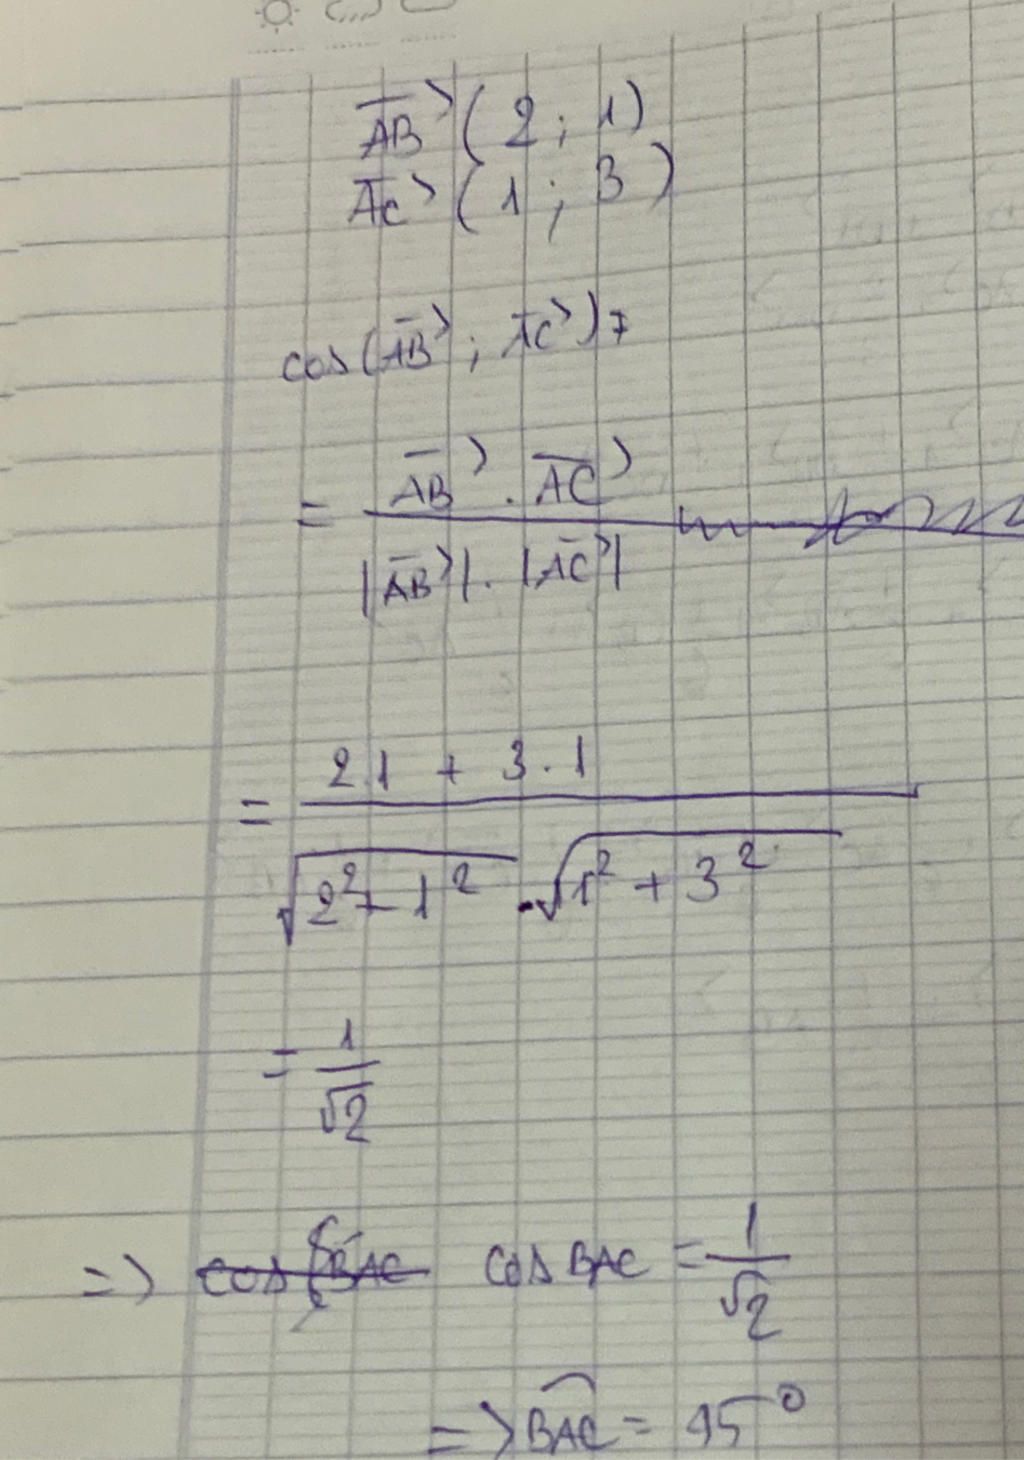 AB→ ( 2 ; 1 )
AC→ ( 1 ; 3 )
cos(AB→ ; AC→) =
= AB→ . AC→ / |AB→| . |AC→|
= 2.1 + 3.1 / √(2² + 1²) . √(1² + 3²)
= 1/√2
=> cos BAC = 1/√2
=> BAC = 45°